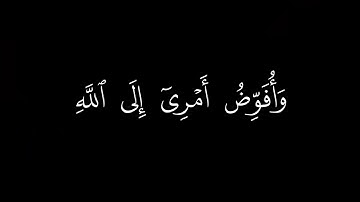 وَأُفَوِّضُ أَمْرِىٓ إِلَى ٱللَّهِ